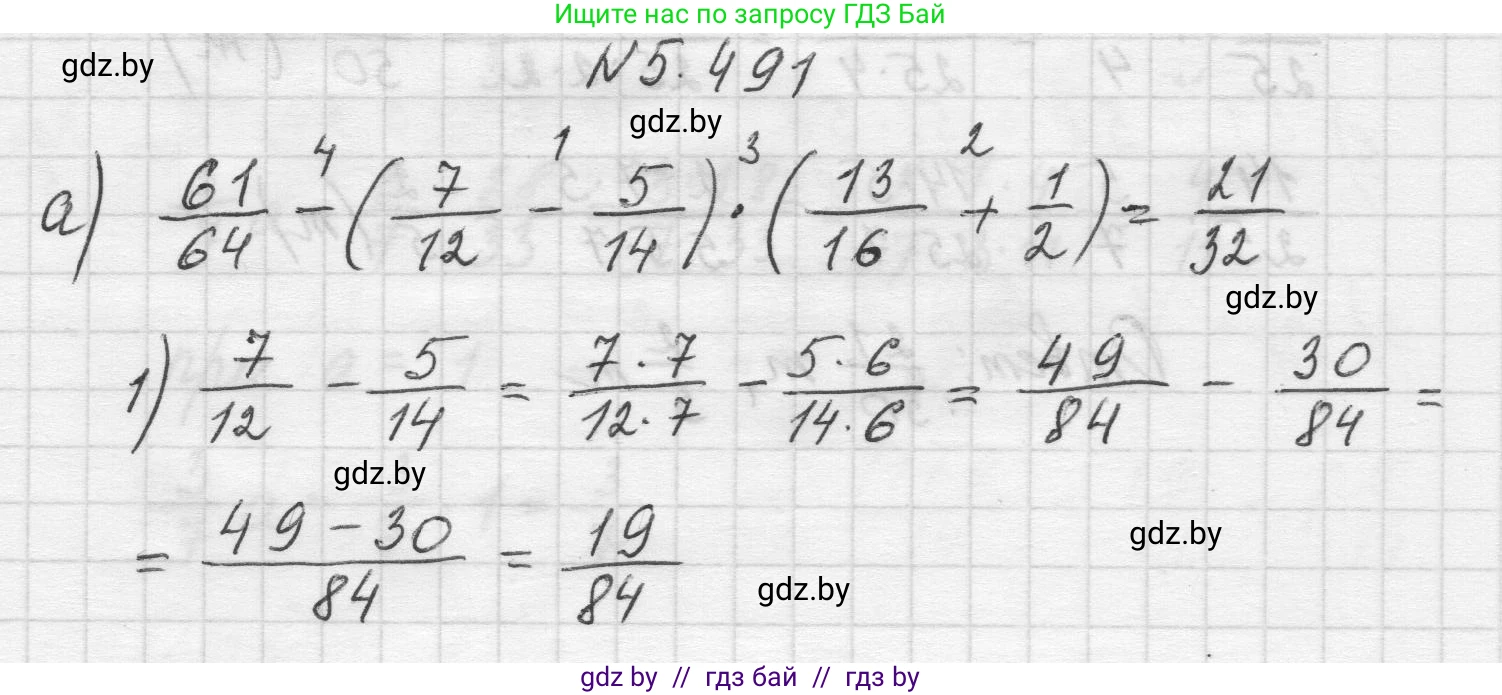 Ищите нас по запросу ГДЗ Бай
gdz.by
N 5.491
gdz.by
а) 61/64 -⁴ (7/12 -¹ 5/14) ·³ (13/16 +² 1/2) = 21/32
gdz.by
1) 7/12 - 5/14 = 7·7/12·7 - 5·6/14·6 = 49/84 - 30/84 =
gdz.by
= 49-30/84 = 19/84
gdz.by
gdz.by
gdz by // гдз бай // гдз by